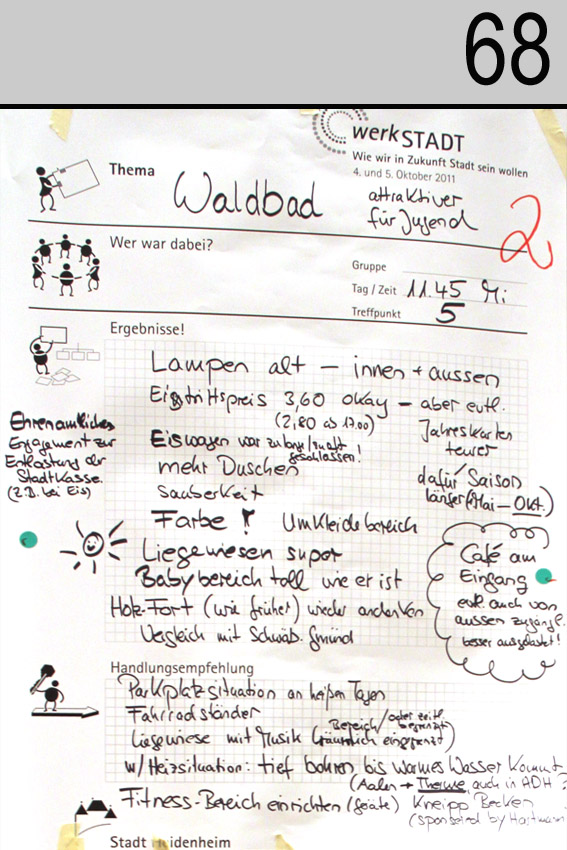 68
werkSTADT
Wie wir in Zukunft Stadt sein wollen
4. und 5. Oktober 2011
Thema
Waldbad
attraktiver
für Jugend
2
Wer war dabei?
Gruppe
Tag / Zeit 11.45 Mi
Treffpunkt 5
Ergebnisse!
Lampen alt – innen + aussen
Eintrittspreis 3,60 okay – aber evtl.
(2,80 ab 17.00)
Jahreskarten
teurer
Eiswagen war zu lange/zu oft
geschlossen!
mehr Duschen
dafür Saison
länger (Mai – Okt.)
Sauberkeit
Ehrenamtliches
Engagement zur
Entlastung der
Stadtkasse.
(z.B. bei Eis)
Farbe! Umkleidebereich
Liegewiesen super
Babybereich toll wie er ist
Holz-Fort (wie früher) wieder andenken
Vergleich mit Schwäb. Gmünd
Café am
Eingang
evtl. auch von
aussen zugängl.
besser ausgelastet!
Handlungsempfehlung
Parkplatzsituation an heißen Tagen
Fahrradständer
Bereich/oder zeitl.
begrenzt
Liegewiese mit Musik (räumlich eingegrenzt)
w/Heizsituation: tief bohren bis warmes Wasser kommt
(Aalen → Therme, auch in ADH ?
Fitness-Bereich einrichten (Geräte) Kneipp Becken
(Sponsered by Hartmann
Stadt Heidenheim